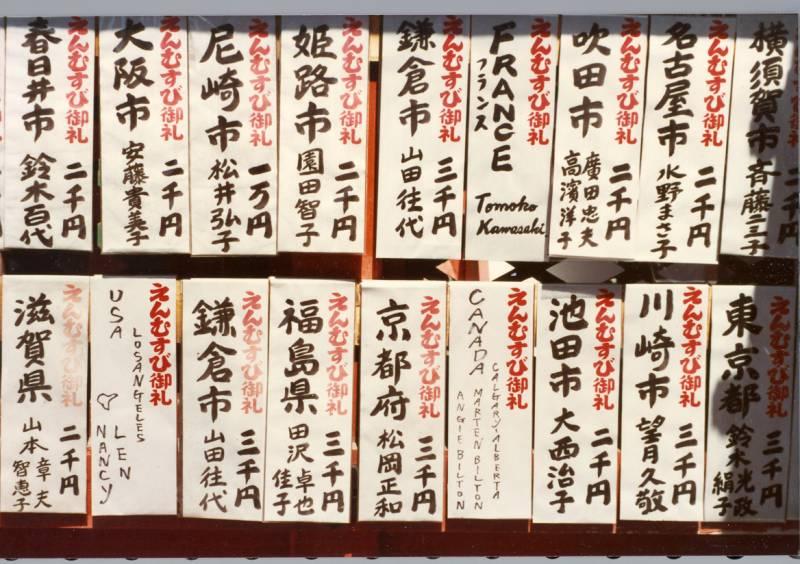 えんむすび御礼
横須賀市 斉藤二三子
えんむすび御礼
名古屋市 水野まさ子 二千円
えんむすび御礼
吹田市 廣田忠夫 二千円
高濱洋子
えんむすび御礼
FRANCE
フランス
Tomoko
Kawasaki
えんむすび御礼
鎌倉市 山田往代 三千円
えんむすび御礼
姫路市 園田智子 二千円
えんむすび御礼
尼崎市 松井弘子 一万円
えんむすび御礼
大阪市 安藤貴美子 二千円
えんむすび御礼
春日井市 鈴木百代 二千円
えんむすび御礼
東京都 鈴木光政 三千円
絹子
えんむすび御礼
川崎市 望月久敬 三千円
えんむすび御礼
池田市 大西治子 二千円
えんむすび御礼
CALGARY, ALBERTA
CANADA MARTEN BILTON
ANGIE BILTON
えんむすび御礼
京都府 松岡正和 三千円
えんむすび御礼
福島県 田沢卓也 二千円
佳子
えんむすび御礼
鎌倉市 山田往代 三千円
えんむすび御礼
LOSANGELES
USA
LEN
NANCY
えんむすび御礼
滋賀県 山本章夫 二千円
智恵子